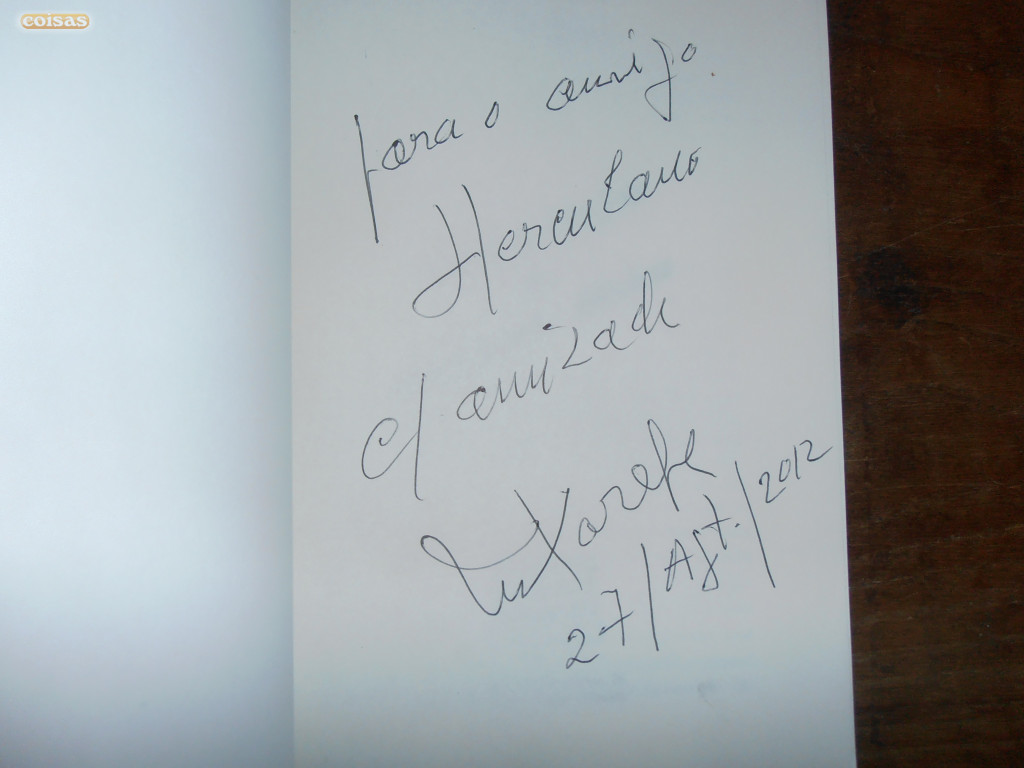 coisas
para o amigo
Herculano
c/ amizade
27/Agt./2012